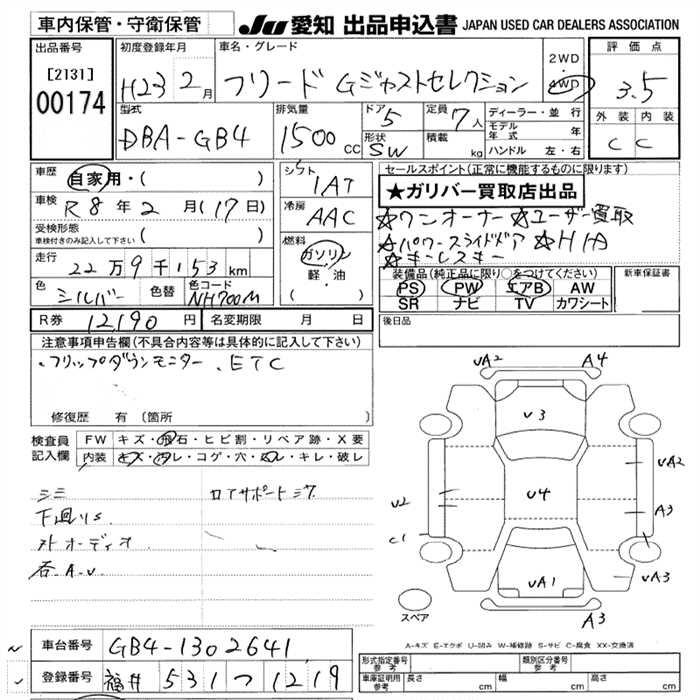 車内保管・守衛保管 JU 愛知 出品申込書 JAPAN USED CAR DEALERS ASSOCIATION
出品番号
[2131]
00174
初度登録年月
H23 2月
車名・グレード
フリード Gジャストセレクション
2WD
・
4WD
評価点
3.5
外装 内装
C C
型式
DBA-GB4
排気量
1500cc
ドア
5
形状
SW
定員
7人
積載
kg
ディーラー・並行
モデル年式 年
ハンドル 左・右
車歴
自家用・( )
車検
R8年2月(17日)
受検形態
車検付きのみ記入して下さい ( )
走行
22万9千153km
色
シルバー
色替
色コード
NH700M
シフト
IAT
冷房
AAC
燃料
ガソリン
軽・油
( )
セールスポイント(正常に機能するものに限ります)
★ガリバー買取店出品
☆ワンオーナー ☆ユーザー買取
☆パワースライドドア ☆HID
☆キーレスキー
装備品(純正品に限り○をつけてください)
PS PW エアB AW
SR ナビ TV カワシート
新車保証書
R券 12190円 名変期限 月 日
後日品
注意事項申告欄(不具合内容等は具体的に記入して下さい)
・フリップダウンモニター. ETC
修復歴 有(箇所 )
検査員記入欄
FW キズ・飛石・ヒビ割・リペア跡・X要
内装 キズ・汚レ・コゲ・穴・スレ・キレ・破レ
下廻りS
オーディオ
A4
UA2
U3
UA2
U2
U4
A3
C1
UA1
UA3
スペア
A4
A3
A-キズ E-エクボ U-凹み W-補修跡 S-サビ C-腐食 XX-交換済
車台番号 GB4-1302641
登録番号 福井 531 つ 1219
形式指定番号 参考
類別区分番号 参考
車庫証明用 参考 長さ cm 幅 cm 高さ cm